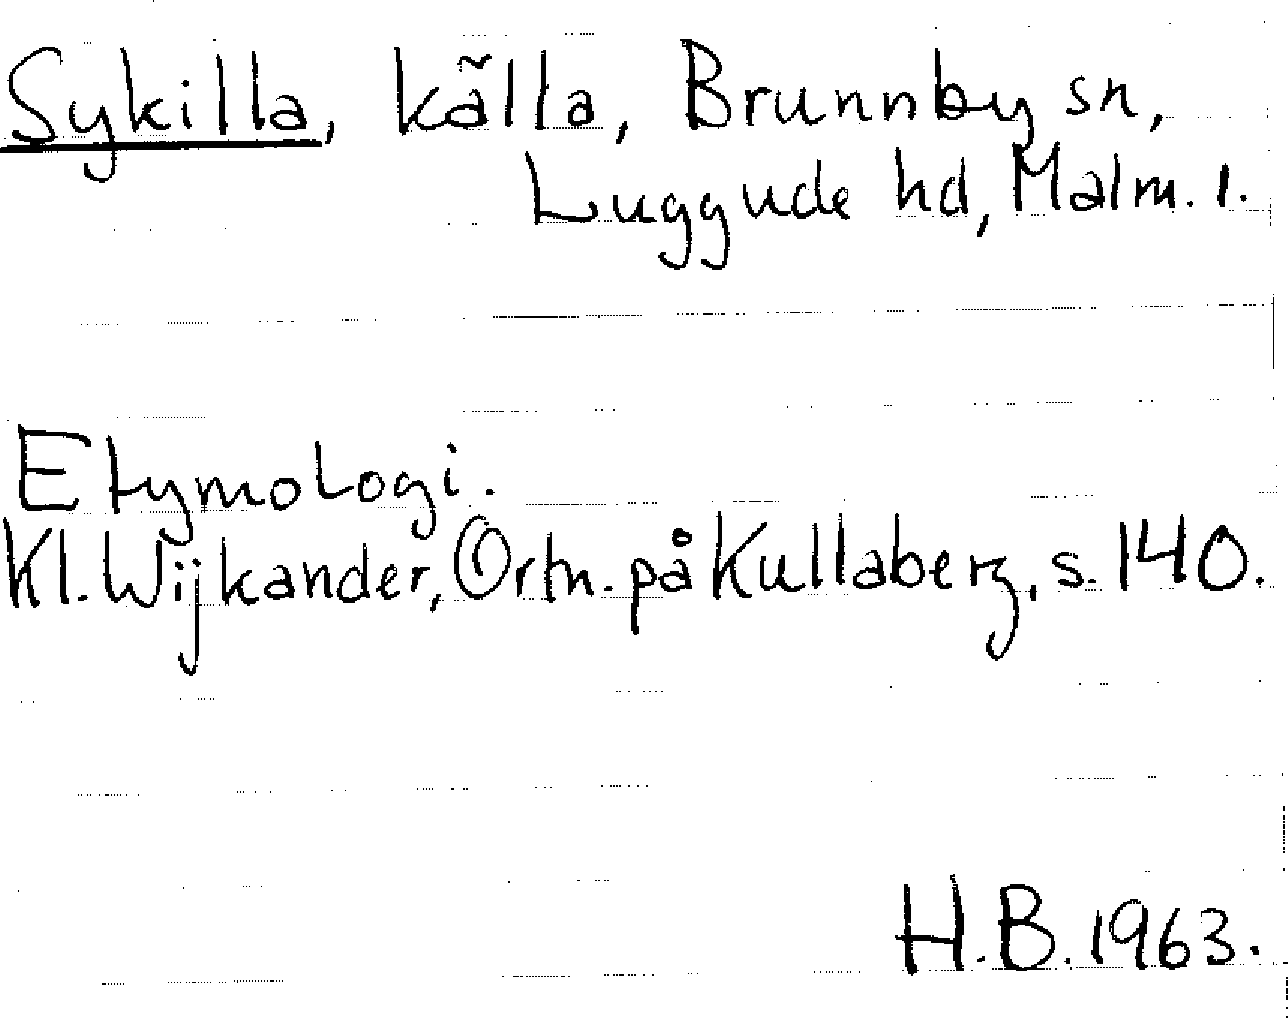 Sykilla, källa, Brunnby sn,
Luggude hd, Malm. l.
Etymologi.
Kl. Wijkander, Ortn. på Kullaberg, s. 140.
H.B. 1963.